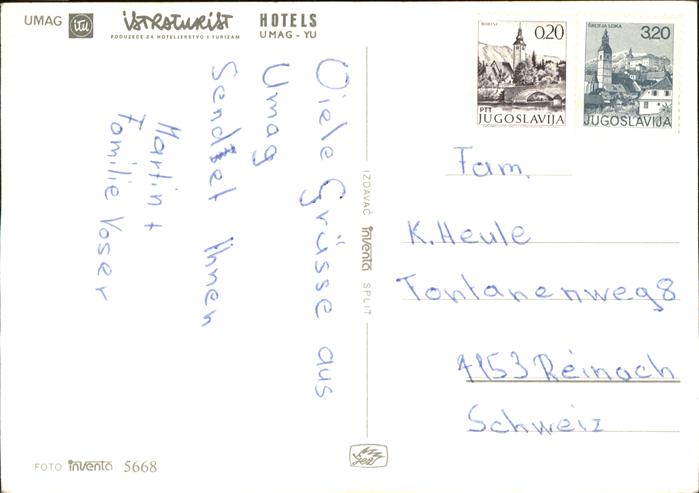 UMAG itu istraturist HOTELS
PODUZEĆE ZA HOTELJERSTVO I TURIZAM UMAG - YU
Viele Grüsse aus
Umag
Sendet Ihnen
Martin +
Familie Voser
IZDAVAČ inventa SPLIT
BOHINJ
0,20
PTT
JUGOSLAVIJA
ŠKOFJA LOKA
3,20
JUGOSLAVIJA
Fam.
K. Heule
Fontanenweg 8
4153 Reinach
Schweiz
FOTO inventa 5668